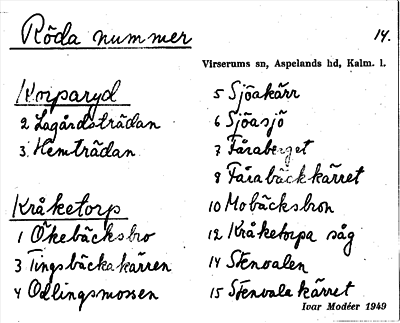 Röda nummer
14.
Virserums sn, Aspelands hd, Kalm. l.
Korparyd
2 Lagårdsträdan
3 Hemträdan
Kråketorp
1 Ökebäcksbro
3 Tingsbäckakärren
4 Odlingsmossen
5 Sjöakärr
6 Sjöasjö
7 Fåraberget
8 Fårabäckkärret
10 Mobäcksbron
12 Kråketorpa såg
14 Stenvalen
15 Stenvalakärret
Ivar Modéer 1949